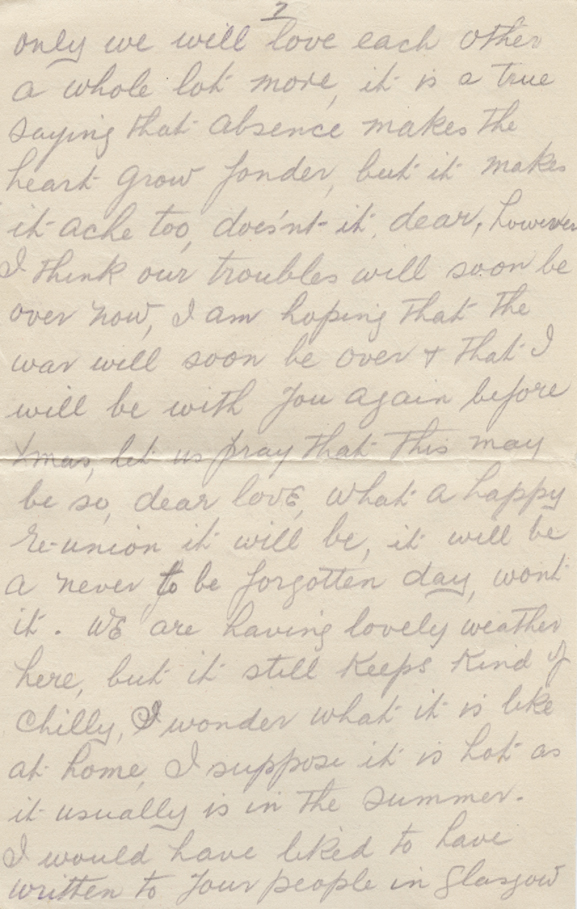 7
only we will love each other
a whole lot more, it is a true
saying that absence makes the
heart grow fonder, but it makes
it ache too, does'nt it, dear, however
I think our troubles will soon be
over now, I am hoping that the
war will soon be over & that I
will be with you again before
Xmas, let us pray that this may
be so, dear love, what a happy
re-union it will be, it will be
a never to be forgotten day, wont
it. We are having lovely weather
here, but it still keeps kind of
chilly, I wonder what it is like
at home, I suppose it is hot as
it usually is in the summer.
I would have liked to have
written to your people in Glasgow